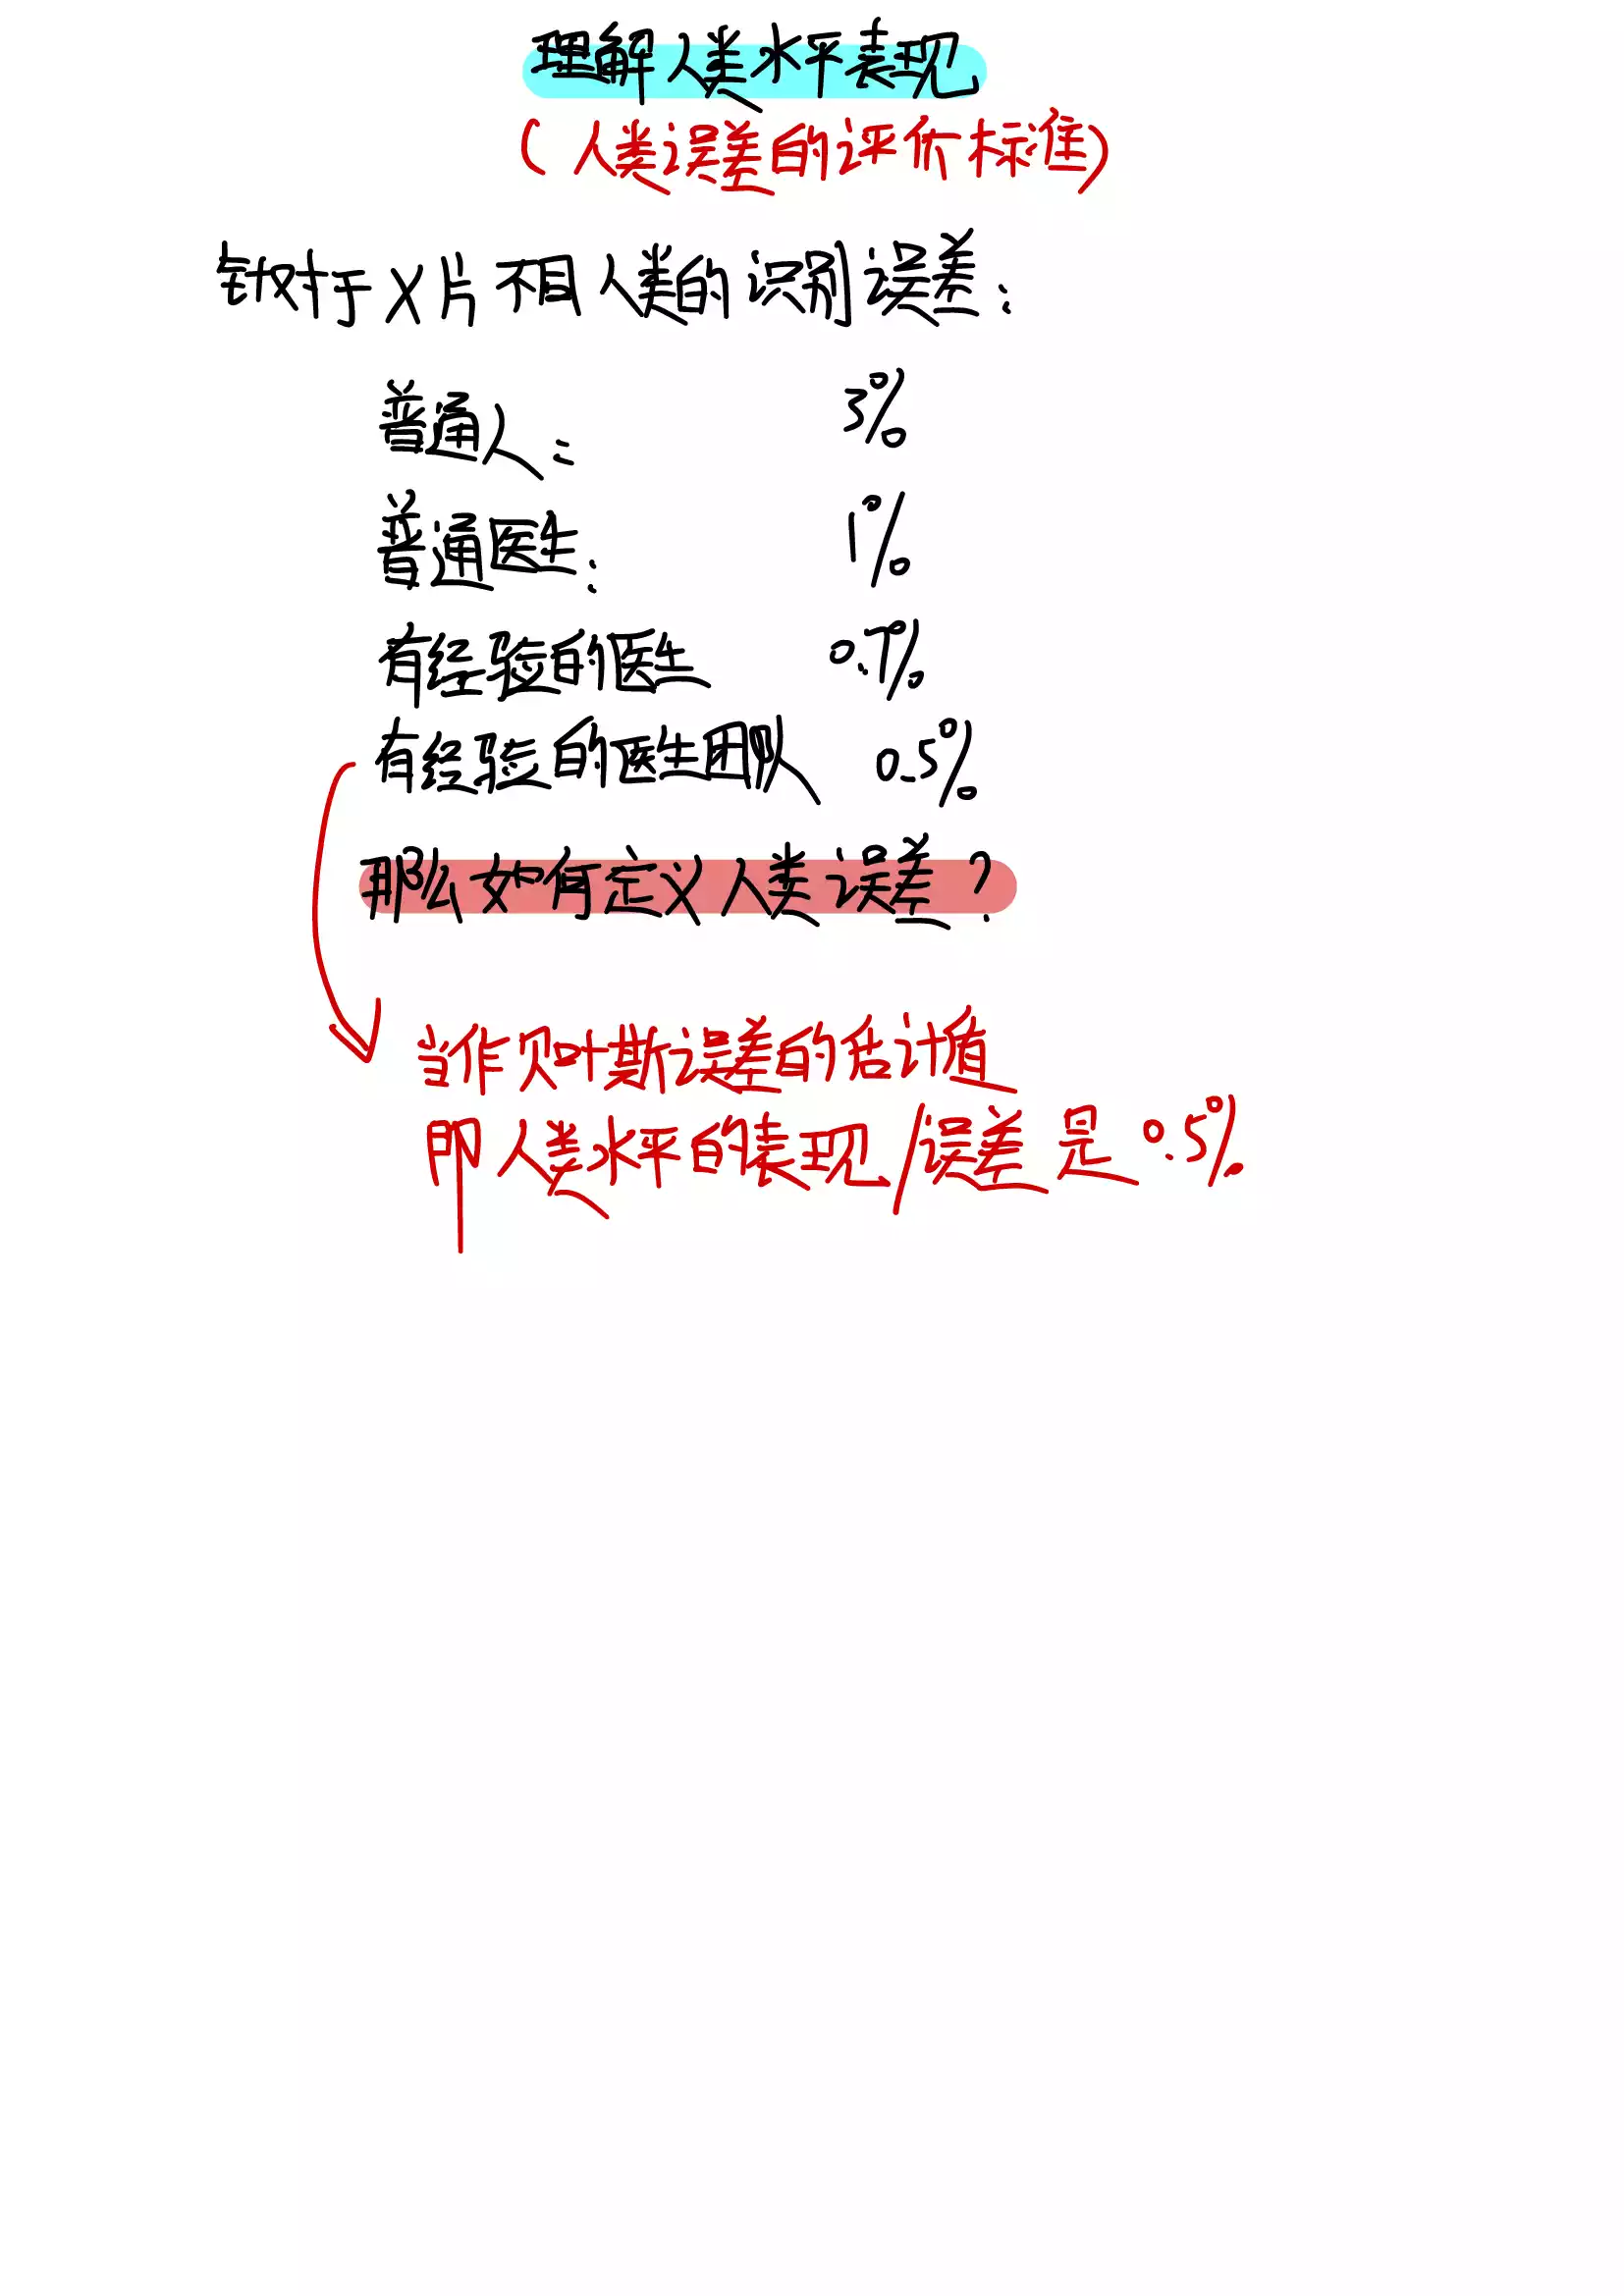 理解人类水平表现
(人类误差的评价标准)
针对于X片不同人类的识别误差:
普通人: 3%
普通医生: 1%
有经验的医生 0.7%
有经验的医生团队 0.5%
那么如何定义人类误差?
当作贝叶斯误差的估计值
即人类水平的表现/误差是0.5%